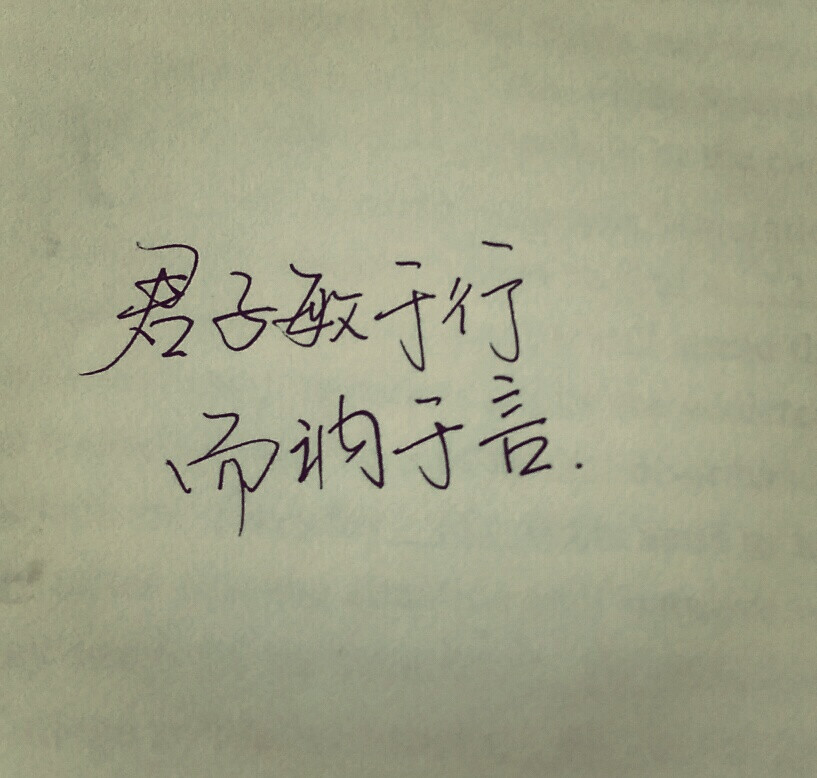 君子敏于行
而讷于言.